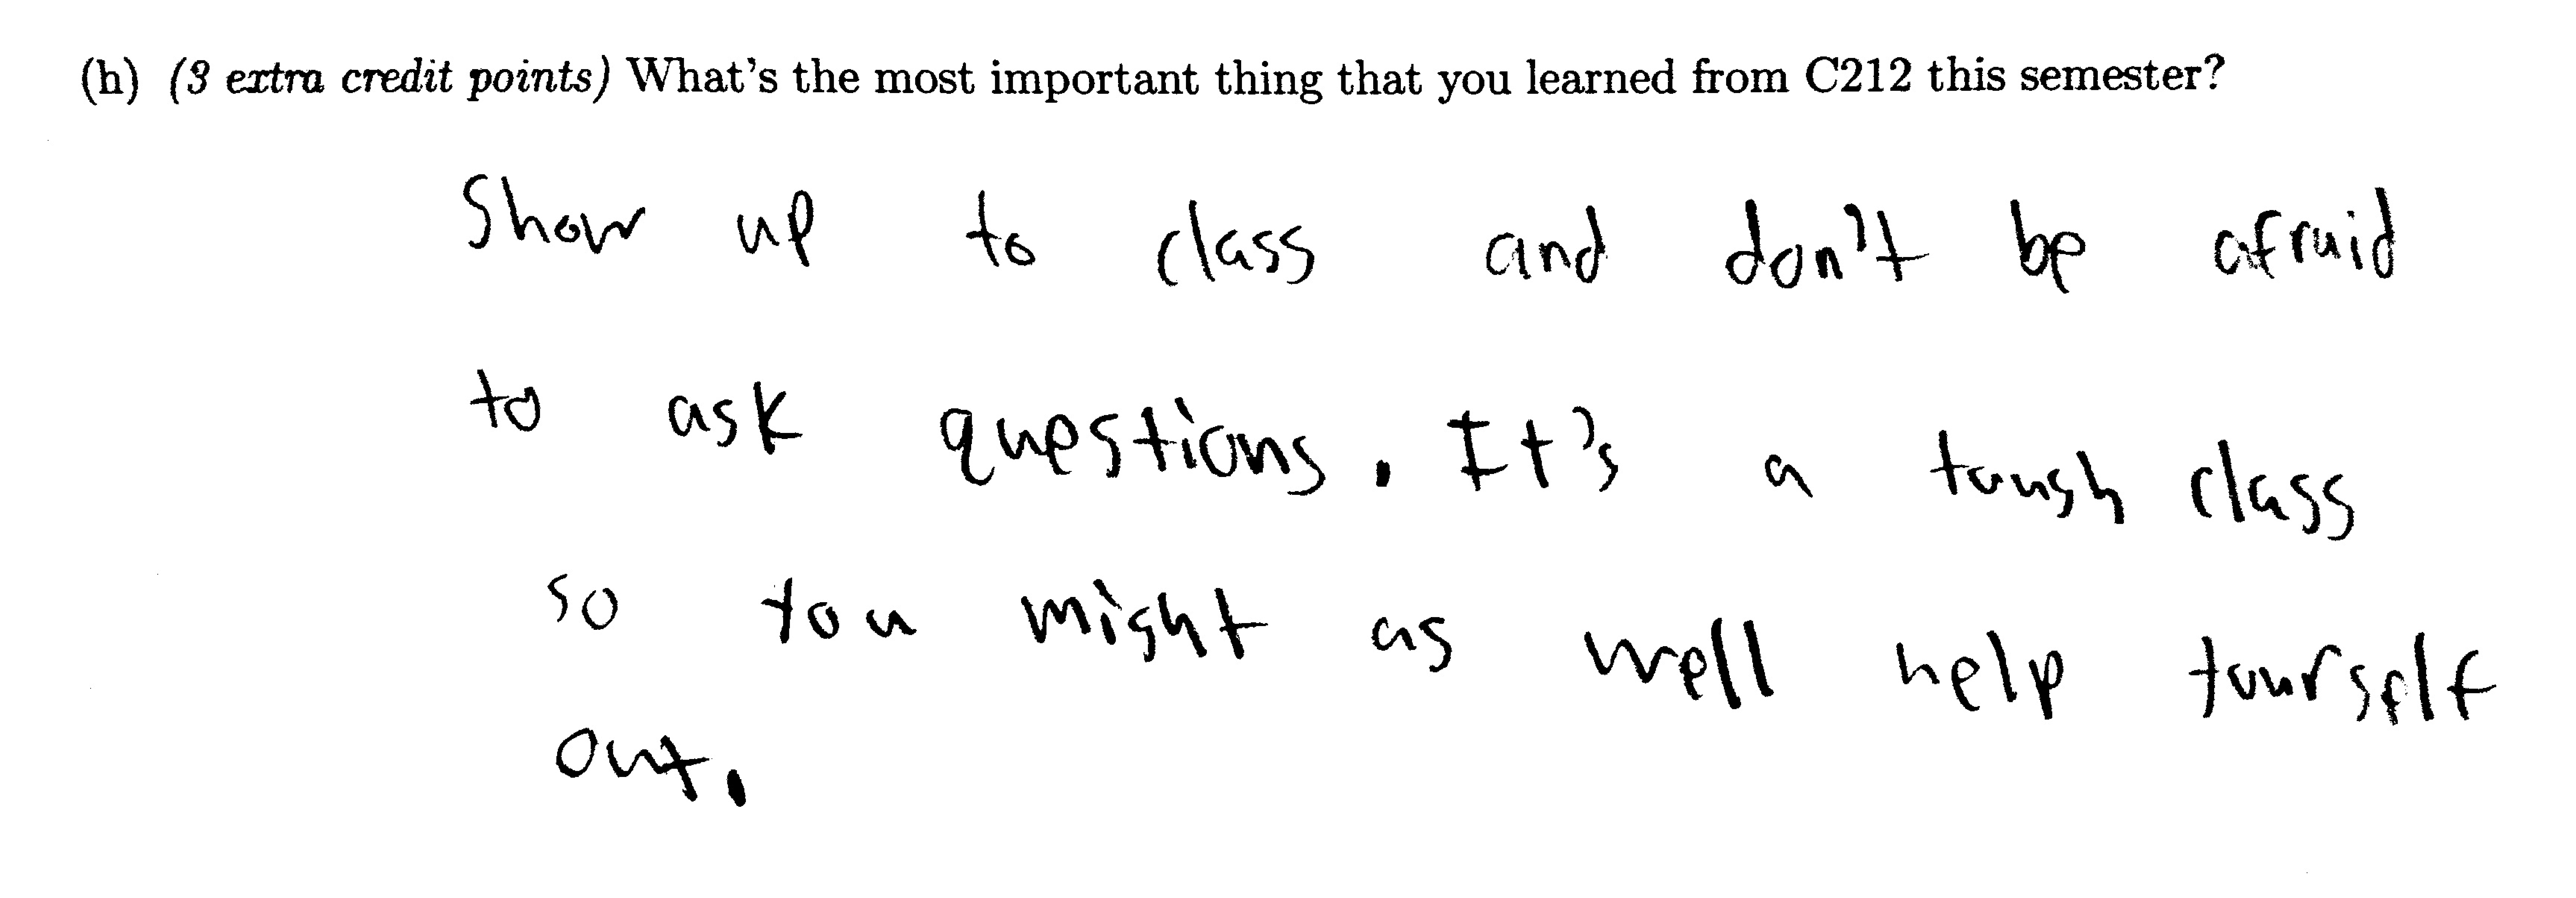 (h) (3 extra credit points) What's the most important thing that you learned from C212 this semester?
Show up to class and don't be afraid
to ask questions. It's a tough class
so you might as well help yourself
out.